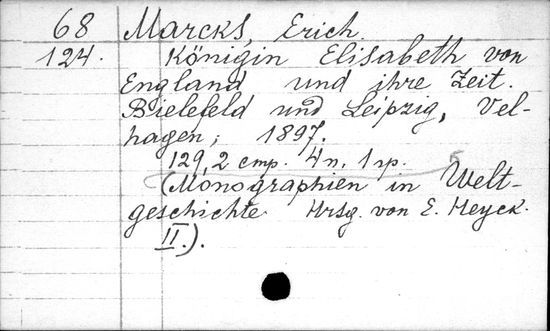 68 Marcks, Erich.
124. Königin Elisabeth von
England und ihre Zeit.
Bielefeld und Leipzig, Vel-
hagen, 1897.
129, 2 стр. 4 п, 1 ур.
(Monographien in Welt-
geschichte Hrsg. von E. Heyck.
II.).